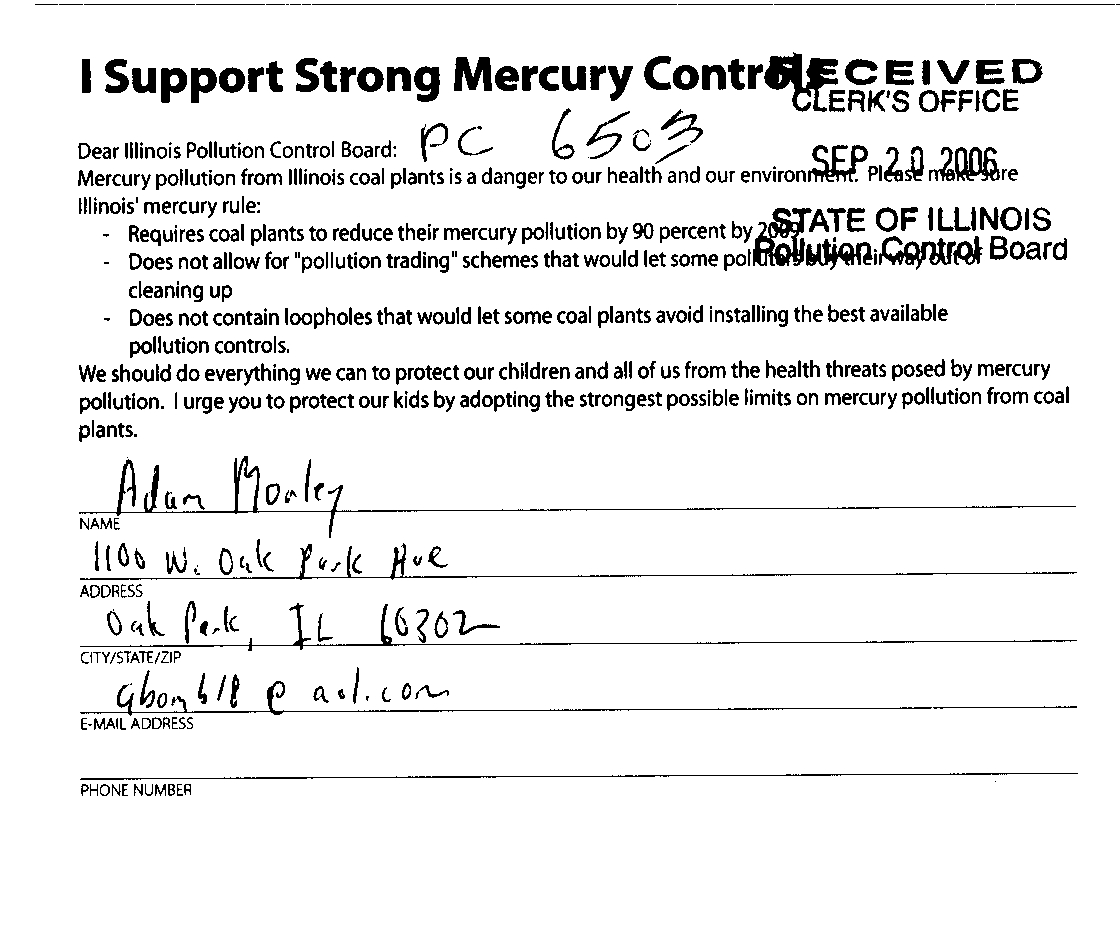 I Support Strong Mercury Controls
RECEIVED
CLERK'S OFFICE
Dear Illinois Pollution Control Board: PC 6503
SEP 20 2006
Mercury pollution from Illinois coal plants is a danger to our health and our environment. Please make sure
Illinois' mercury rule:
- Requires coal plants to reduce their mercury pollution by 90 percent by 2009
STATE OF ILLINOIS
Pollution Control Board
- Does not allow for "pollution trading" schemes that would let some polluters buy their way out of
cleaning up
- Does not contain loopholes that would let some coal plants avoid installing the best available
pollution controls.
We should do everything we can to protect our children and all of us from the health threats posed by mercury
pollution. I urge you to protect our kids by adopting the strongest possible limits on mercury pollution from coal
plants.
Adam
NAME
1100 W. Oak Park Ave
ADDRESS
Oak Park, IL 60302
CITY/STATE/ZIP
@ aol.com
E-MAIL ADDRESS
PHONE NUMBER